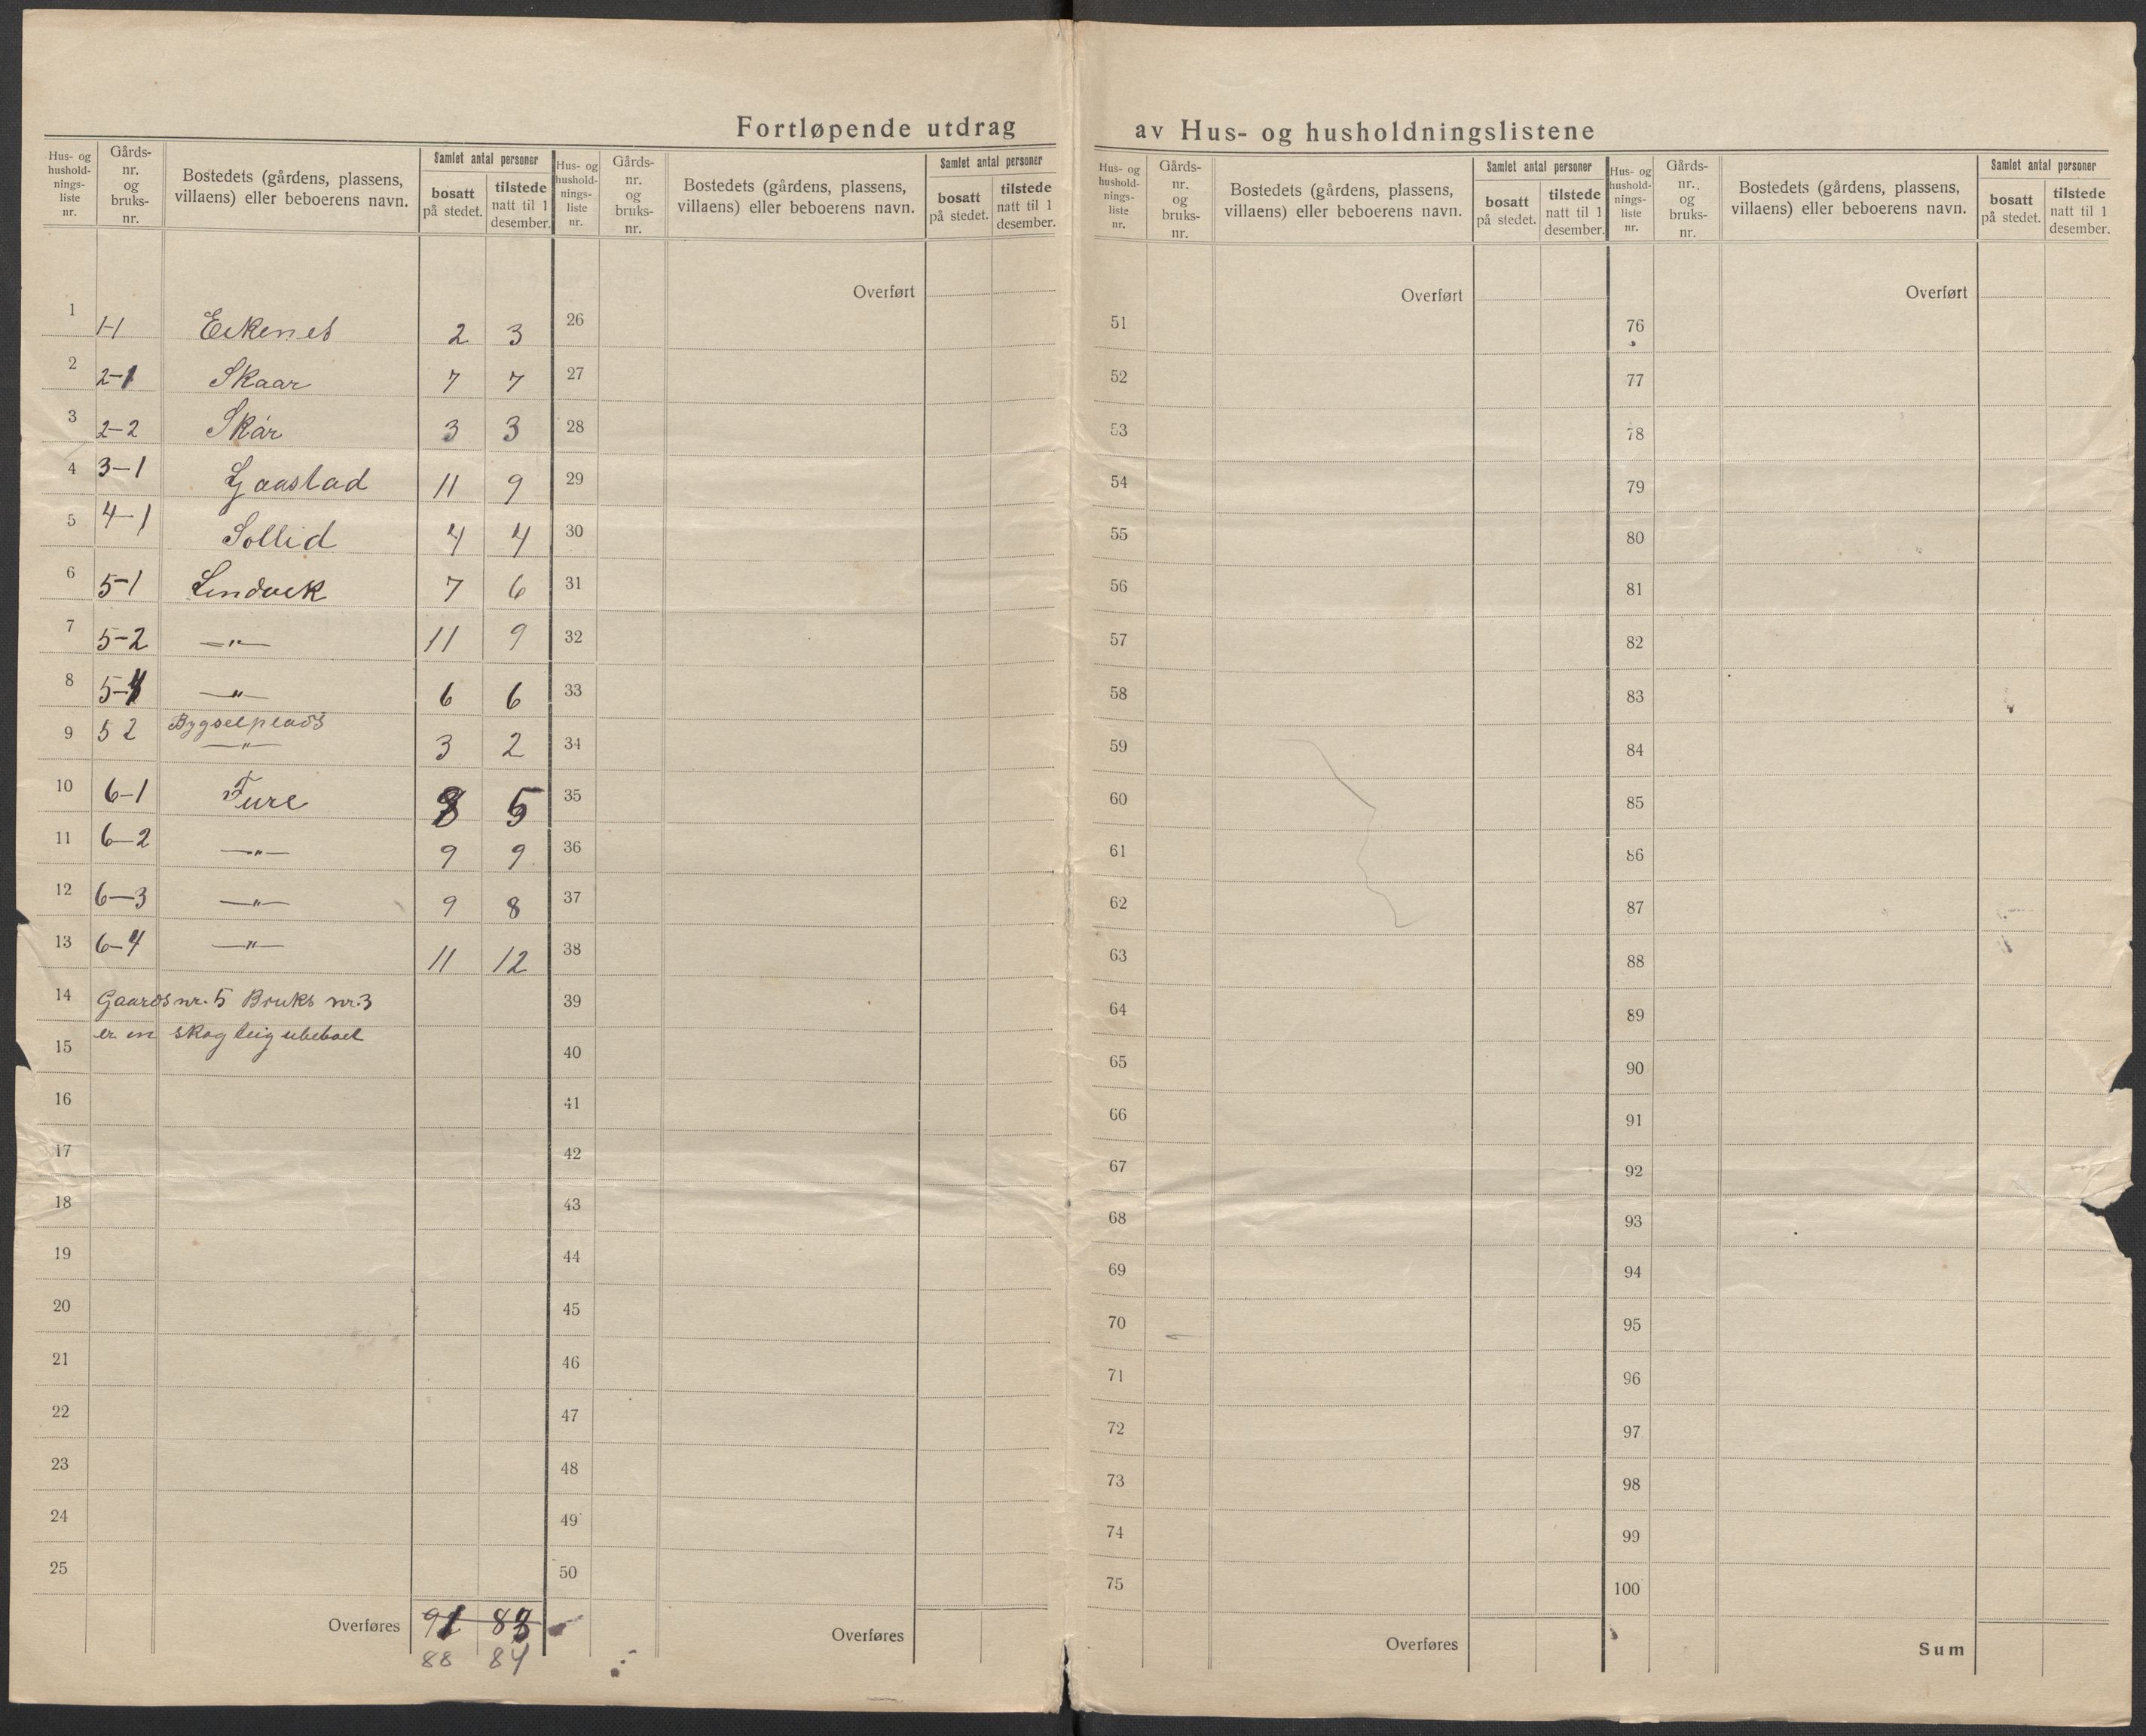 Fortløpende utdrag av Hus- og husholdningslistene
Hus- og hushold-nings-liste nr. Gårds-nr. og bruks-nr. Bostedets (gårdens, plassens, villaens) eller beboerens navn. Samlet antal personer bosatt på stedet. tilstede natt til 1 desember.
Hus- og hushold-nings-liste nr. Gårds-nr. og bruks-nr. Bostedets (gårdens, plassens, villaens) eller beboerens navn. Samlet antal personer bosatt på stedet. tilstede natt til 1 desember.
Hus- og hushold-nings-liste nr. Gårds-nr. og bruks-nr. Bostedets (gårdens, plassens, villaens) eller beboerens navn. Samlet antal personer bosatt på stedet. tilstede natt til 1 desember.
Hus- og hushold-nings-liste nr. Gårds-nr. og bruks-nr. Bostedets (gårdens, plassens, villaens) eller beboerens navn. Samlet antal personer bosatt på stedet. tilstede natt til 1 desember.
1 1-1 Eikenes 2 3
2 2-1 Skaar 7 7
3 2-2 Skår 3 3
4 3-1 Gaastad 11 9
5 4-1 Sollid 4 4
6 5-1 Lendvik 7 6
7 5-2 —"— 11 9
8 5-4 —"— 6 6
9 5 2 Bygselplads —"— 3 2
10 6-1 Fure 8 5
11 6-2 —"— 9 9
12 6-3 —"— 9 8
13 6-4 —"— 11 12
14 Gaards nr. 5 Bruks nr. 3
15 er en skog teig ubeboet
16
17
18
19
20
21
22
23
24
25
Overføres
88 84
Overført
26
27
28
29
30
31
32
33
34
35
36
37
38
39
40
41
42
43
44
45
46
47
48
49
50
Overføres
Overført
51
52
53
54
55
56
57
58
59
60
61
62
63
64
65
66
67
68
69
70
71
72
73
74
75
Overføres
Overført
76
77
78
79
80
81
82
83
84
85
86
87
88
89
90
91
92
93
94
95
96
97
98
99
100
Sum